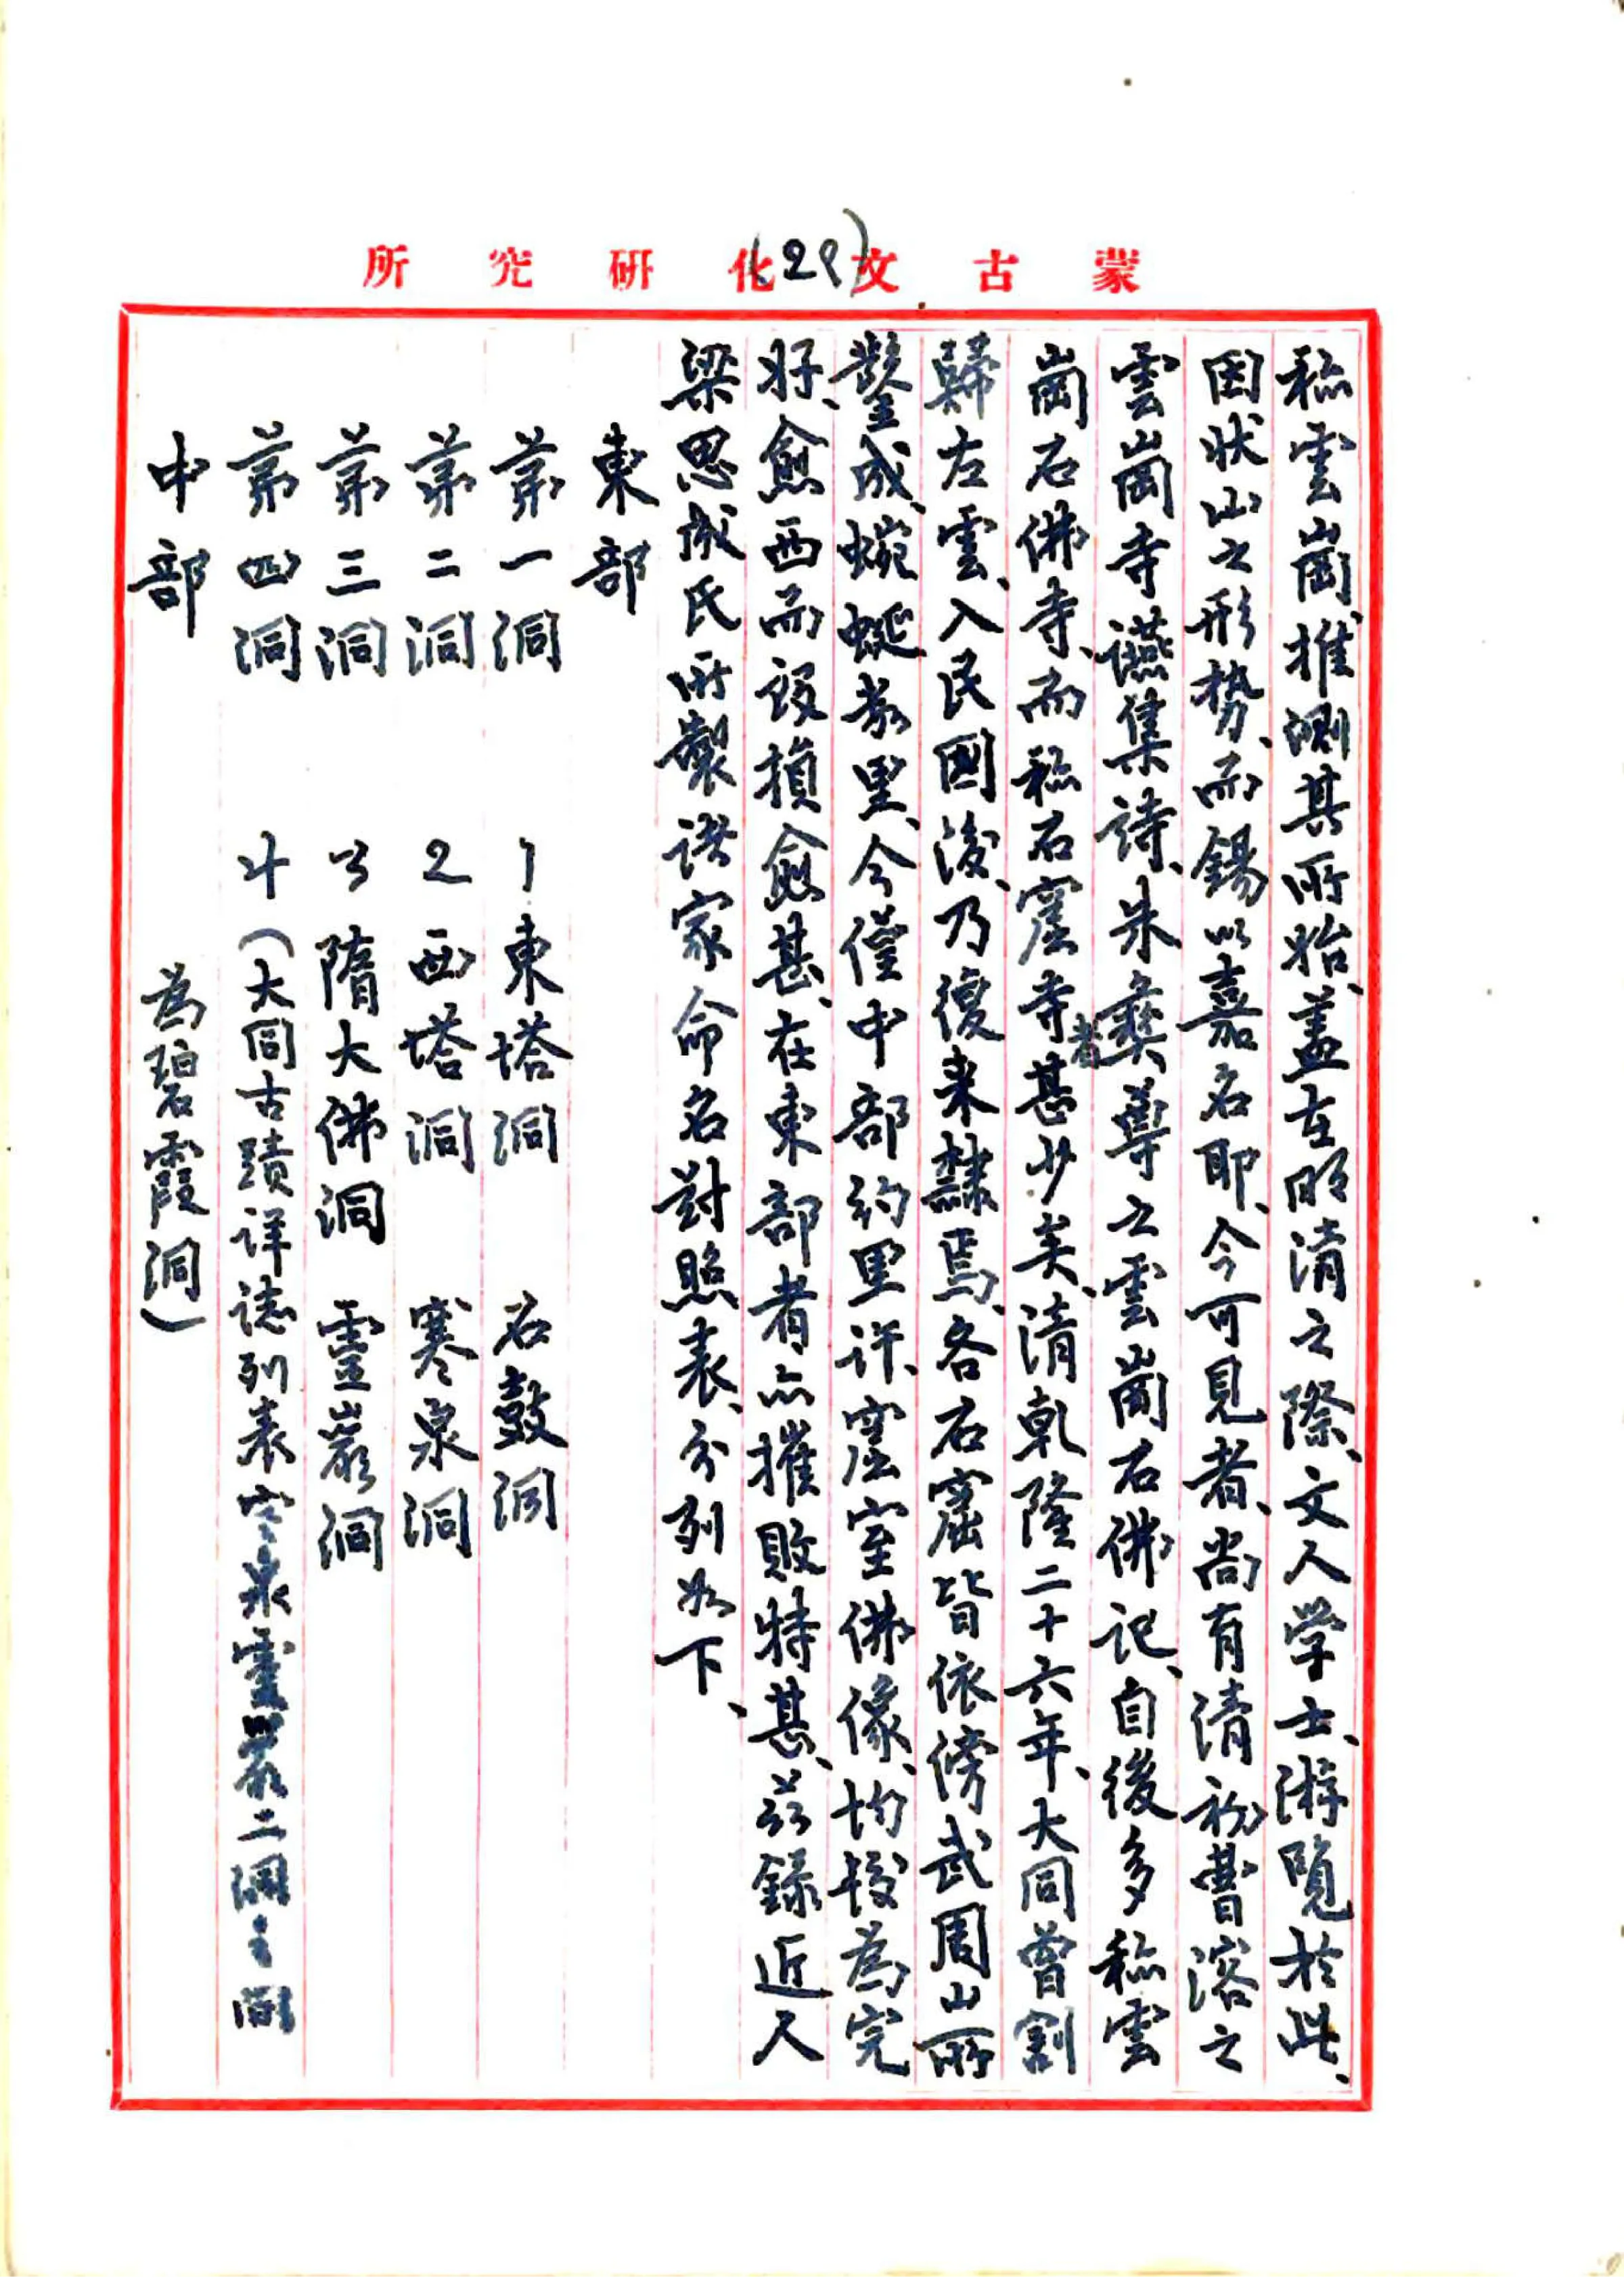 蒙古文化研究所
(29)
称雲崗、推測其所始、蓋在明清之際、文人学士、游覧於此、
因状山之形势、而錫以嘉名耶、今可見者、尚有清初曹溶之
雲崗寺讌集詩、朱彝尊之雲崗石佛記、自後多称雲
崗石佛寺、而称石窟寺者甚少矣、清乾隆二十六年、大同曾割
歸左雲、入民國後、乃復来隸焉、各石窟皆依傍武周山所
鑿成、蜿蜒数里、今僅中部約里許、窟室佛像、均較為完
好、愈西而毀損愈甚、在東部者亦摧敗特甚、茲録近人
梁思成氏所製諸家命名對照表、分列如下、
東部
第一洞 1 東塔洞 石鼓洞
第二洞 2 西塔洞 寒泉洞
第三洞 3 隋大佛洞 靈巖洞
第四洞 4 (大同古蹟详誌列表寒泉靈巖二洞之間
為碧霞洞)
中部